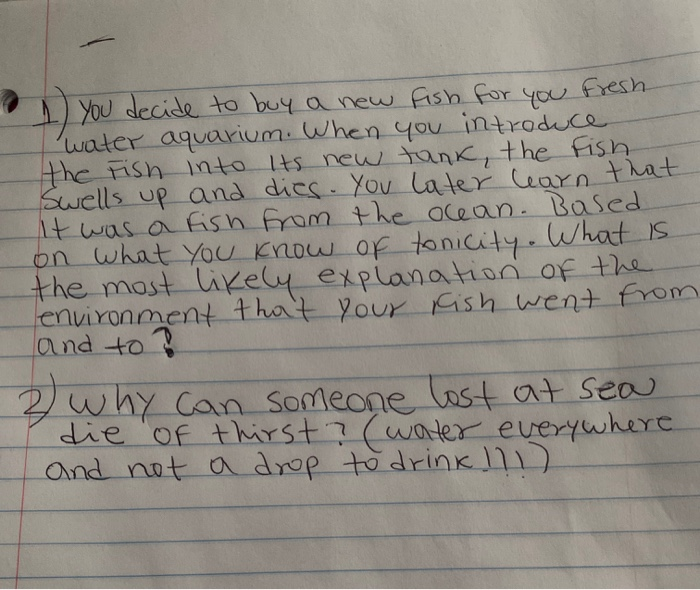 1) You decide to buy a new fish for you fresh
water aquarium. When you introduce
the fish into its new tank, the fish
swells up and dies. You later learn that
it was a fish from the ocean. Based
on what you know of tonicity. What is
the most likely explanation of the
environment that your fish went from
and to?
2) Why can someone lost at sea
die of thirst? (water everywhere
and not a drop to drink!!!)